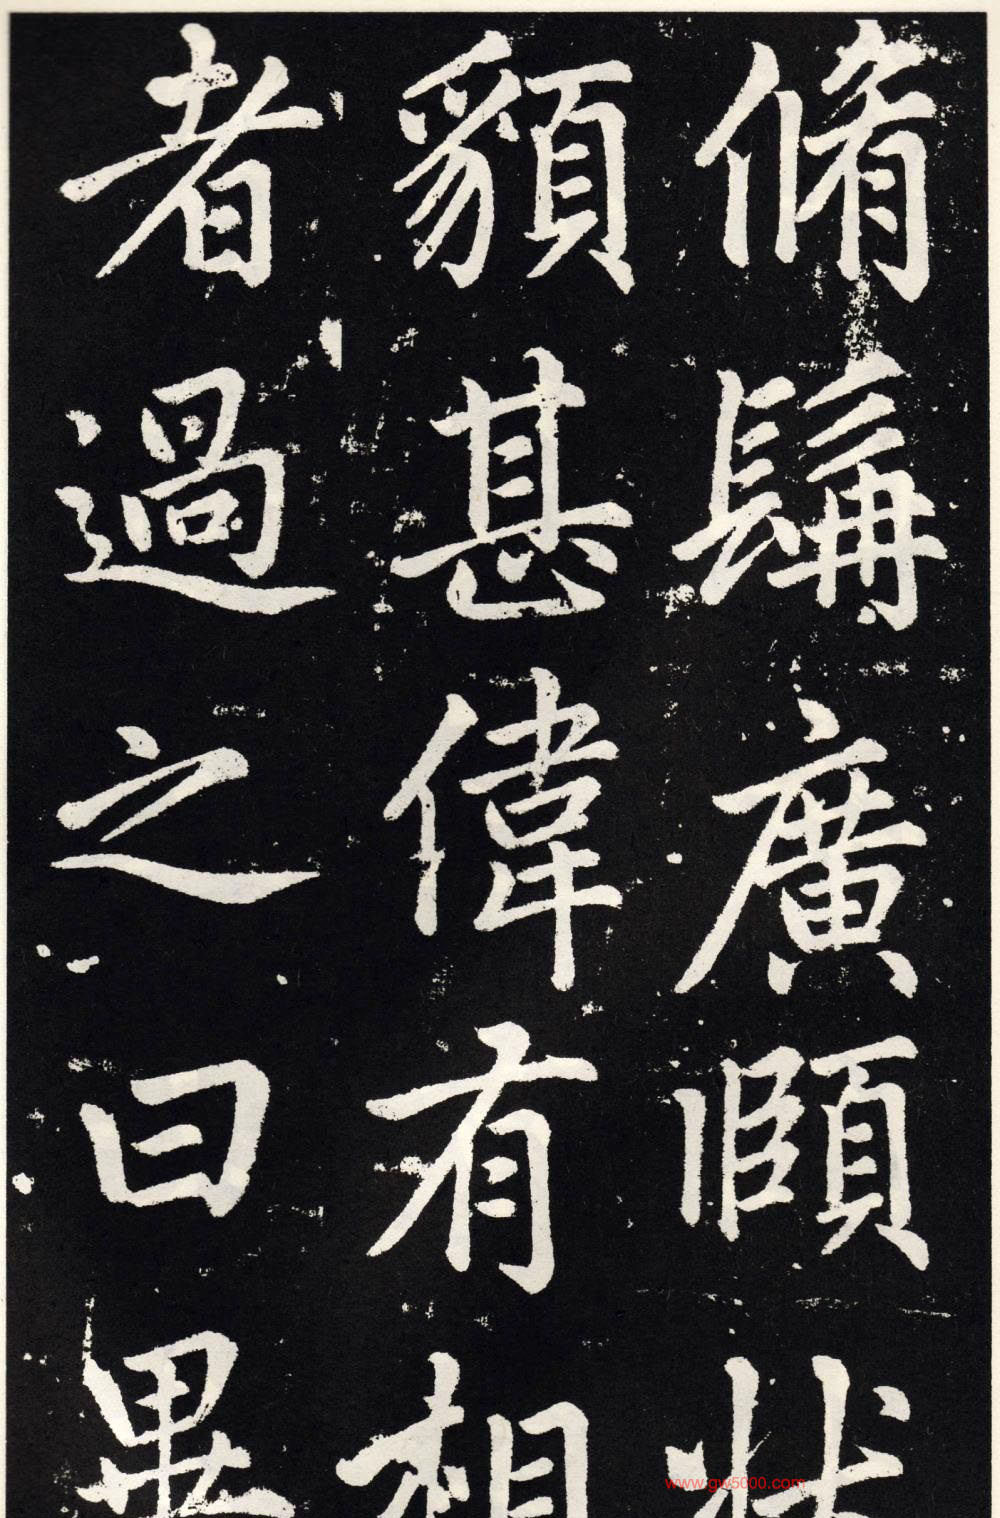 脩髯廣頤狀
貌甚偉有相
者過之曰異
www.gw5000.com